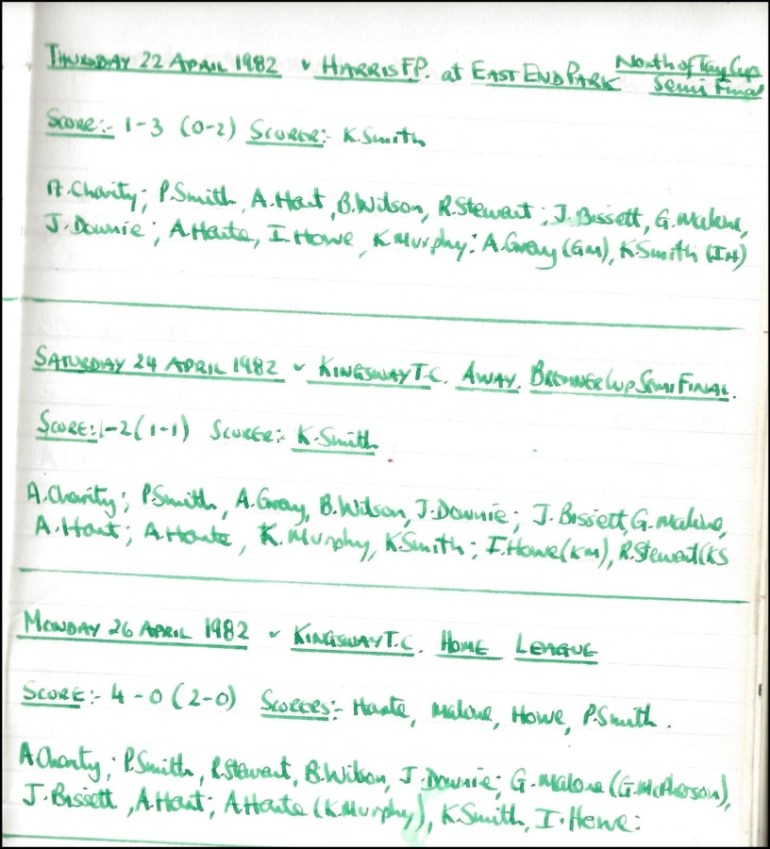 THURSDAY 22 APRIL 1982 v HARRIS F.P. at EAST END PARK North of Tay Cup Semi Final
SCORE:- 1-3 (0-2) SCORER:- K.Smith
A.Charity; P.Smith, A.Hart, B.Wilson, R.Stewart; J.Bissett, G.Malone,
J.Downie; A.Haxte, I.Howe, K.Murphy: A.Gray (GM), K.Smith (IH)
SATURDAY 24 APRIL 1982 v KINGSWAY T.C. AWAY. BREMNER CUP SEMI FINAL.
SCORE:1-2(1-1) SCORER:- K.Smith
A.Charity; P.Smith, A.Gray, B.Wilson, J.Downie; J.Bissett, G.Malone,
A.Hart; A.Haxte, K.Murphy, K.Smith; I.Howe(KM), R.Stewart(KS
MONDAY 26 APRIL 1982 v KINGSWAY T.C. HOME LEAGUE
SCORE:- 4-0 (2-0) SCORERS:- Haxte, Malone, Howe, P.Smith.
A Charity; P.Smith, R.Stewart, B.Wilson, J.Downie; G.Malone (G.McPherson),
J.Bissett, A.Hart; A.Haxte (K.Murphy), K.Smith, I.Howe: